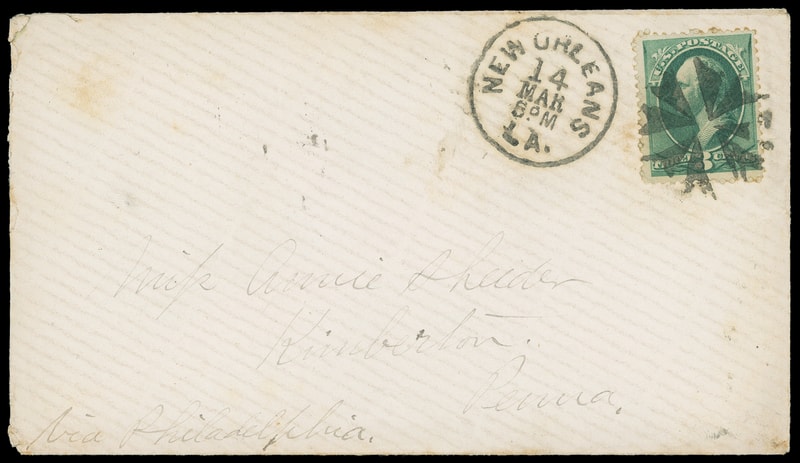 NEW ORLEANS
14
MAR
LA.
U.S. POSTAGE
3
Miss Annie Sheeder
Kimberton.
Penna.
Via Philadelphia.